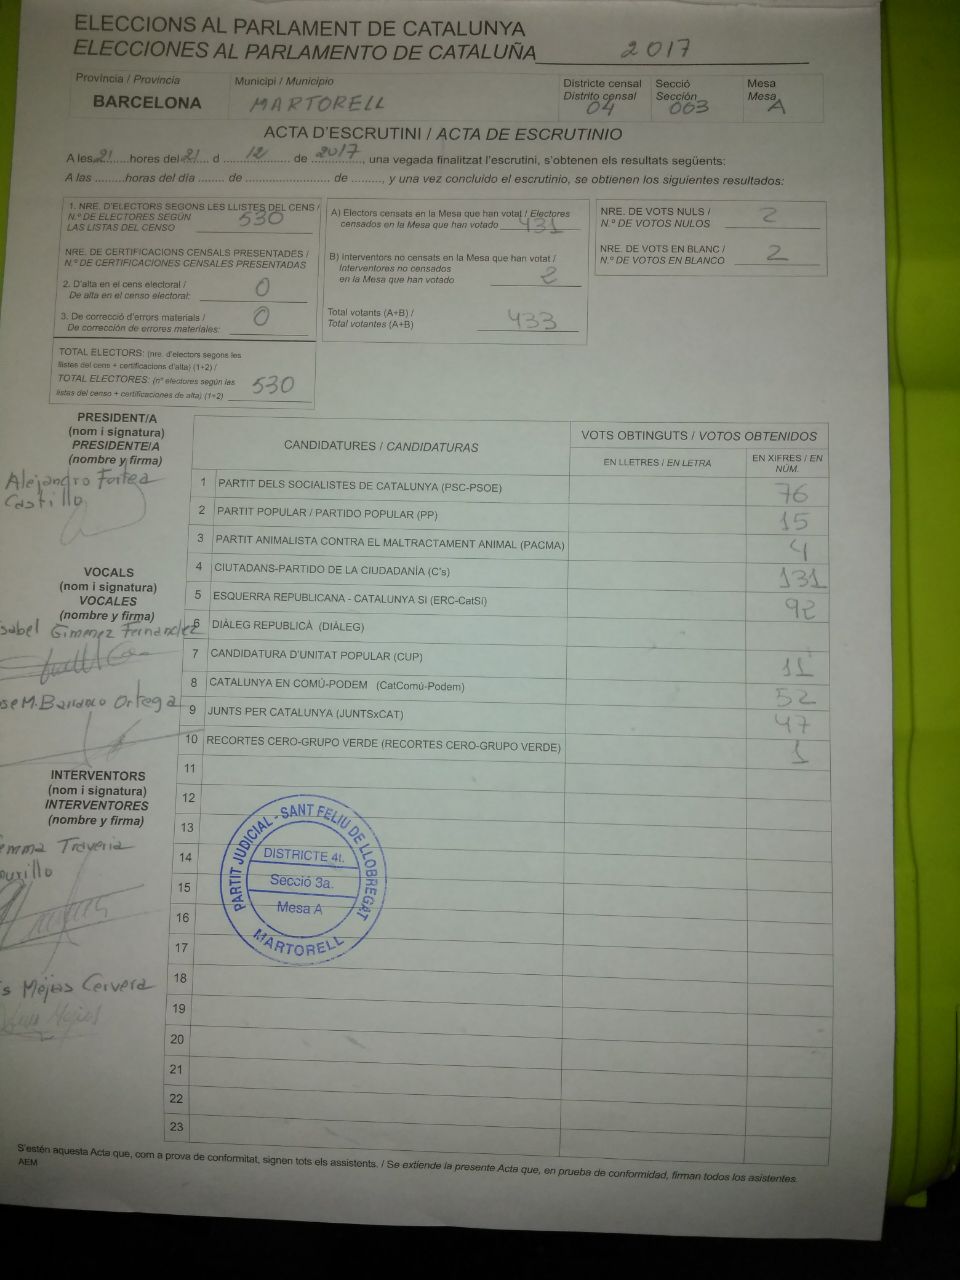 ELECCIONS AL PARLAMENT DE CATALUNYA
ELECCIONES AL PARLAMENTO DE CATALUÑA 2017
Província / Provincia
BARCELONA
Municipi / Municipio
MARTORELL
Districte censal
Distrito censal
04
Secció
Sección
003
Mesa
Mesa
A
ACTA D'ESCRUTINI / ACTA DE ESCRUTINIO
A les 21 hores del 21 d 12 de 2017, una vegada finalitzat l'escrutini, s'obtenen els resultats següents:
A las ......... horas del día ........ de ........................ de ........., y una vez concluido el escrutinio, se obtienen los siguientes resultados:
1. NRE. D'ELECTORS SEGONS LES LLISTES DEL CENS /
N.º DE ELECTORES SEGÚN
LAS LISTAS DEL CENSO
530
NRE. DE CERTIFICACIONS CENSALS PRESENTADES /
N.º DE CERTIFICACIONES CENSALES PRESENTADAS
2. D'alta en el cens electoral /
De alta en el censo electoral:
0
3. De correcció d'errors materials /
De corrección de errores materiales:
0
TOTAL ELECTORS: (nre. d'electors segons les
llistes del cens + certificacions d'alta) (1+2) /
TOTAL ELECTORES: (nº electores según las
listas del censo + certificaciones de alta) (1+2)
530
A) Electors censats en la Mesa que han votat / Electores
censados en la Mesa que han votado
431
B) Interventors no censats en la Mesa que han votat /
Interventores no censados
en la Mesa que han votado
2
Total votants (A+B) /
Total votantes (A+B)
433
NRE. DE VOTS NULS /
N.º DE VOTOS NULOS
2
NRE. DE VOTS EN BLANC /
N.º DE VOTOS EN BLANCO
2
PRESIDENT/A
(nom i signatura)
PRESIDENTE/A
(nombre y firma)
Alejandro Fortea
Castillo
VOCALS
(nom i signatura)
VOCALES
(nombre y firma)
sabel Gimenez Fernandez
se M. Barranco Ortega
INTERVENTORS
(nom i signatura)
INTERVENTORES
(nombre y firma)
emma Traveria
s Mejias Cervera
CANDIDATURES / CANDIDATURAS
VOTS OBTINGUTS / VOTOS OBTENIDOS
EN LLETRES / EN LETRA
EN XIFRES / EN
NÚM.
1 PARTIT DELS SOCIALISTES DE CATALUNYA (PSC-PSOE) 76
2 PARTIT POPULAR / PARTIDO POPULAR (PP) 15
3 PARTIT ANIMALISTA CONTRA EL MALTRACTAMENT ANIMAL (PACMA) 4
4 CIUTADANS-PARTIDO DE LA CIUDADANÍA (C's) 131
5 ESQUERRA REPUBLICANA - CATALUNYA SI (ERC-CatSí) 92
6 DIÀLEG REPUBLICÀ (DIÀLEG)
7 CANDIDATURA D'UNITAT POPULAR (CUP) 11
8 CATALUNYA EN COMÚ-PODEM (CatComú-Podem) 52
9 JUNTS PER CATALUNYA (JUNTSxCAT) 47
10 RECORTES CERO-GRUPO VERDE (RECORTES CERO-GRUPO VERDE) 1
11
12
13
14
15
16
17
18
19
20
21
22
23
PARTIT JUDICIAL - SANT FELIU DE LLOBREGAT
DISTRICTE 4t.
Secció 3a.
Mesa A
MARTORELL
S'estén aquesta Acta que, com a prova de conformitat, signen tots els assistents. / Se extiende la presente Acta que, en prueba de conformidad, firman todos los asistentes.
AEM